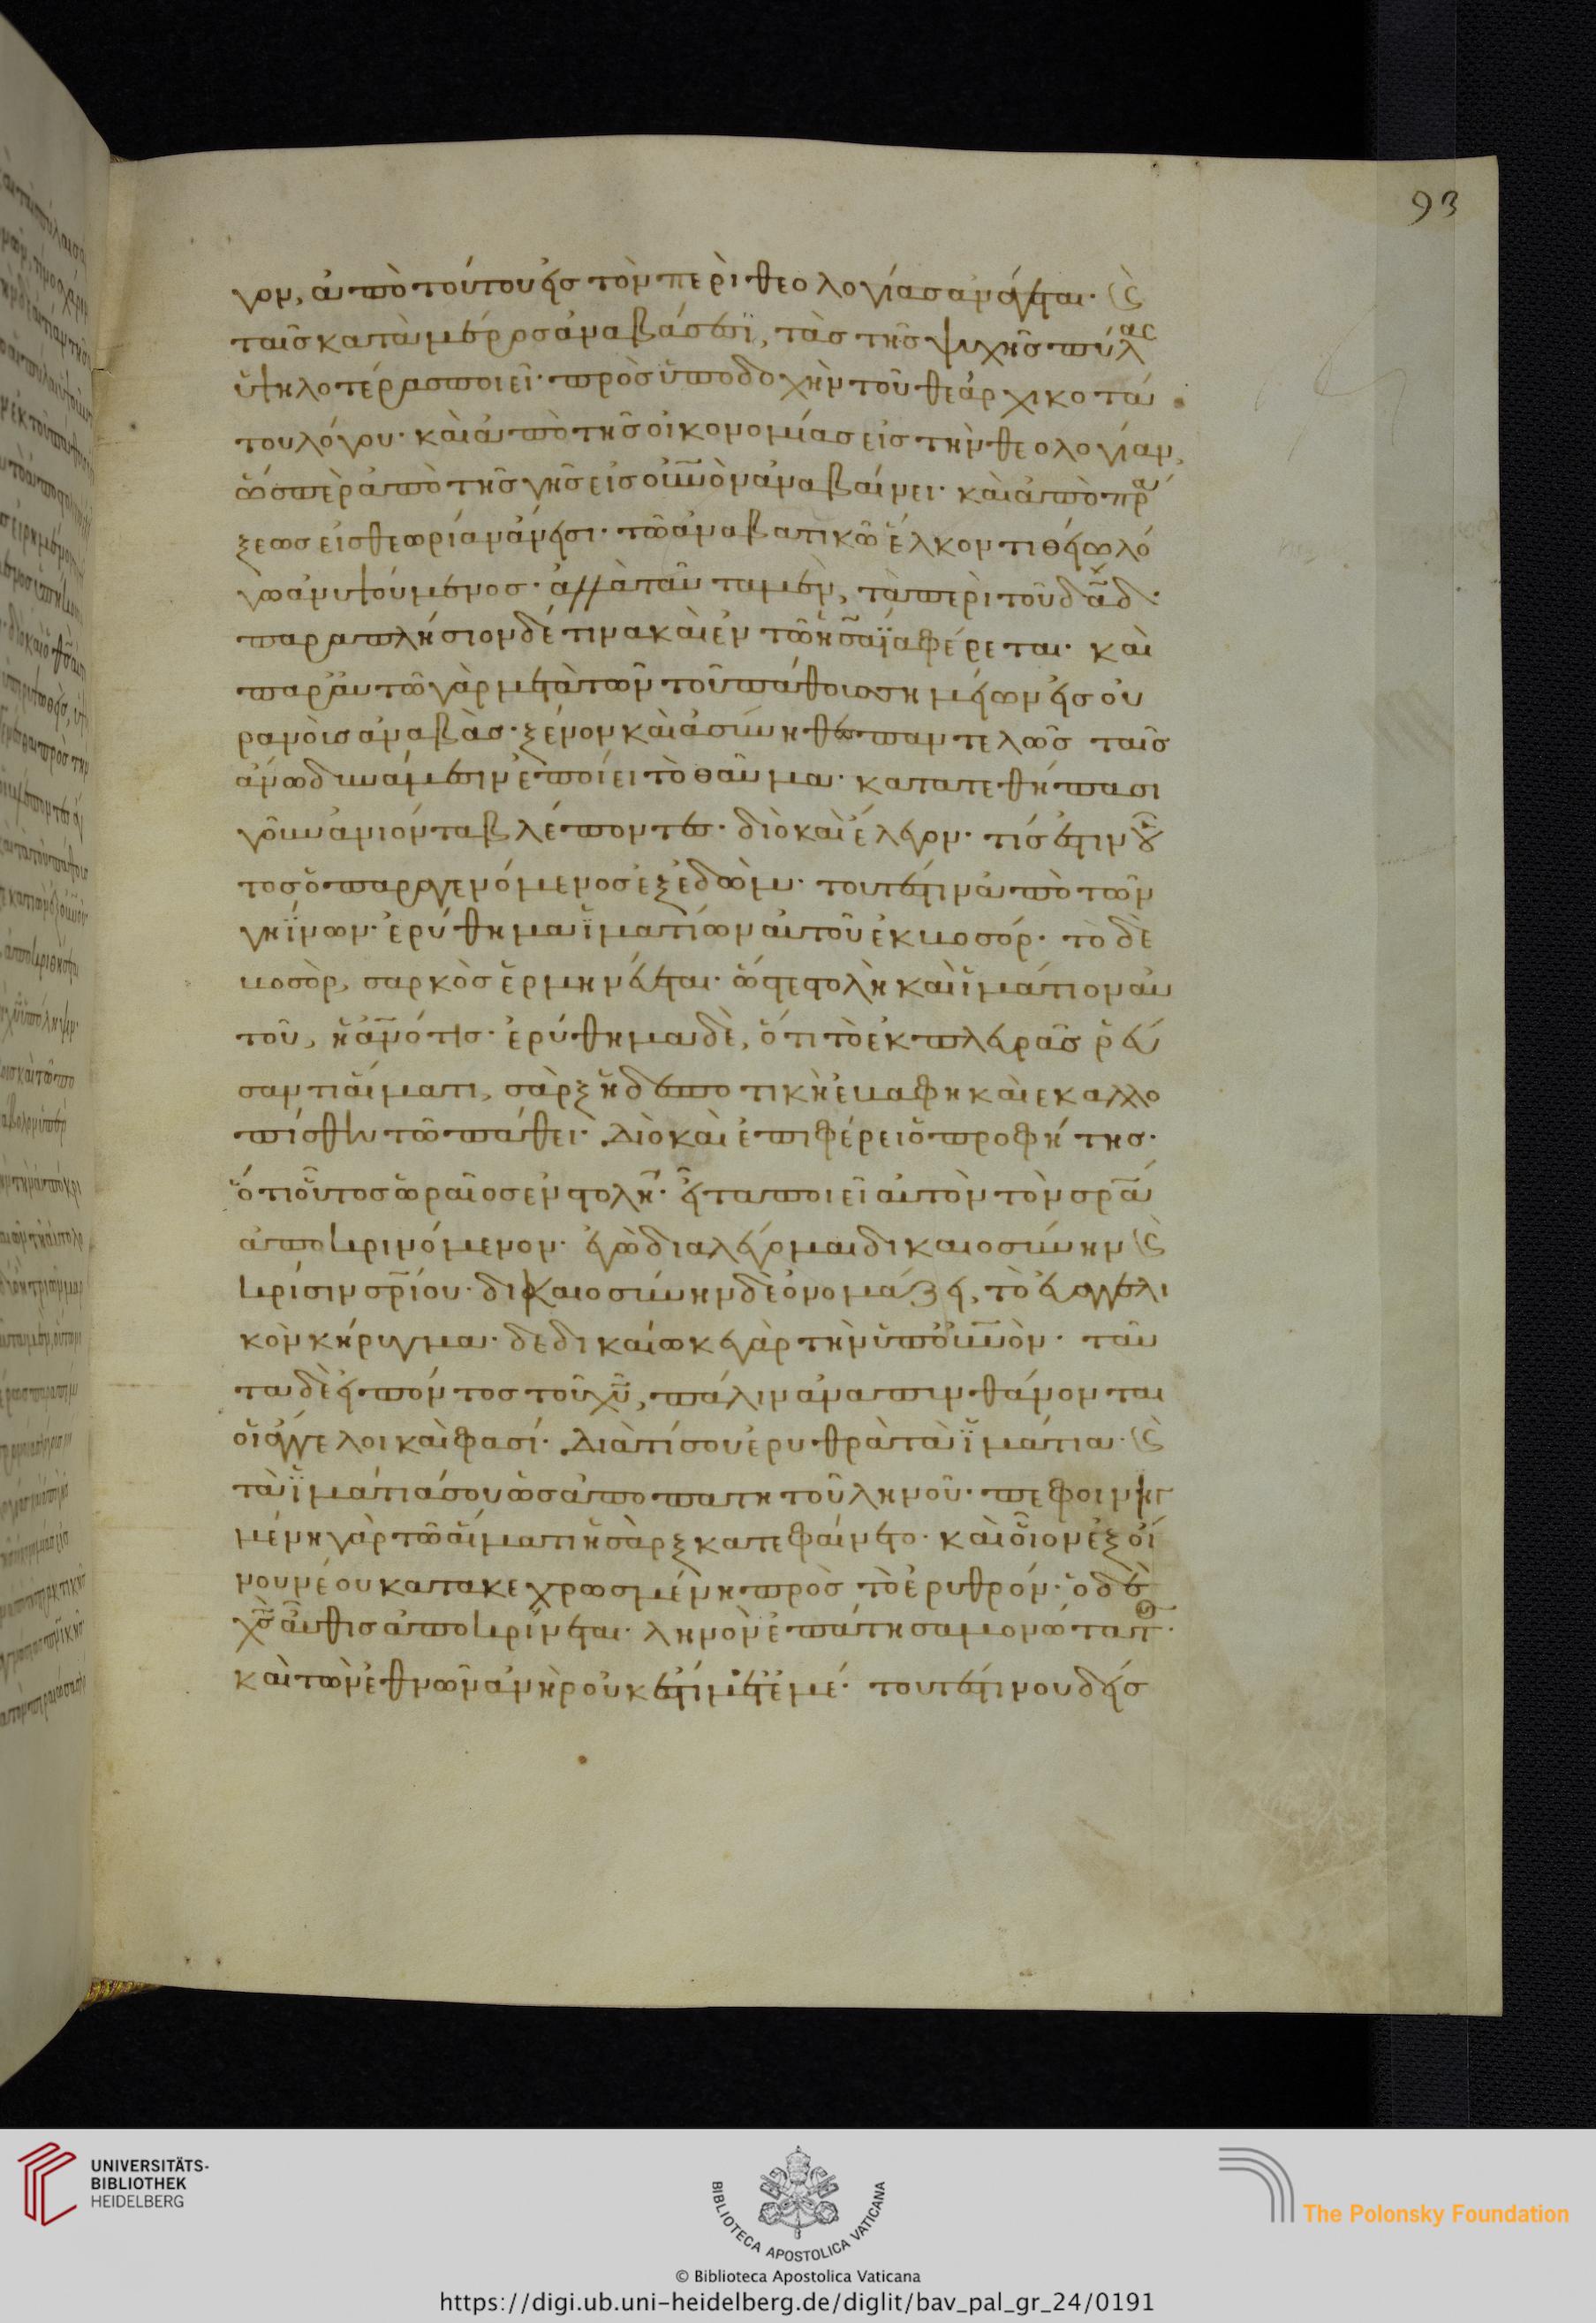 93
γον, ἀπὸ τούτου εἰς τὸν περὶ θεολογίας ἀνάγεται· (καὶ)
ταῖς κατὰ μέρος ἀναβάσεσϊ, τὰς τῆς ψυχῆς πύλας
ὑψηλοτέρας ποιεῖ· πρὸς ὑποδοχὴν τοῦ θεαρχικοτά
του λόγου· καὶ ἀπὸ τῆς οἰκονομίας εἰς τὴν θεολογίαν,
ὥσπερ ἀπὸ τῆς γῆς εἰς οὐνὸν ἀναβαίνει· καὶ ἀπὸ πρά
ξεως εἰς θεωρίαν ἄνεισι· τῶ ἀναβατικῶ ἕλκοντι θείω λό
γω ἀνυψούμενος· ἀλλὰ ταῦτα μὲν, τὰ περὶ τοῦ δᾱδ·
παραπλήσιον δέ τινα καὶ ἐν τῶ ἡσαΐα φέρεται· καὶ
παρ' αὐτῶ γὰρ μετὰ τῶν τοῦ πάθους σημείων εἰς οὐ
ρανοὺς ἀναβὰς· ξένον καὶ ἀσύνηθες παντελῶς ταῖς
ἄνω δυνάμεσιν ἐποίει τὸ θαῦμα· κατατεθήπασι
γοῦν ἀνιόντα βλέποντες· διὸ καὶ ἔλεγον· τίς ἐστιν οὗ
τος ὁ παραγενόμενος ἐξ ἐδὼμ· τουτέστιν ἀπὸ τῶν
γηΐνων· ἐρύθημα ἱματίων αὐτοῦ ἐκ μοσόρ· τὸ δὲ
μοσὸρ, σαρκὸς ἑρμηνεύεται· ὥστε στολὴ καὶ ἱμάτιον αὐ
τοῦ, ἡ ἀνότης· ἐρύθημα δὲ, ὅτι τὸ ἐκ πλευρᾶς ῥεύ
σαντι αἵματι, σὰρξ ἡ δεσποτικὴ ἐμάφη καὶ εκαλλο
πίσθη τῶ πάθει· Διὸ καὶ ἐπιφέρει ὁ προφήτης·
ὅτι οὗτος ὡραῖος ἐν στολῆ· εἶτα ποιεῖ αὐτὸν τὸν σρᾱ
ἀποκρινόμενον· ἐγὼ διαλέγομαι δικαιοσύνην (καὶ)
κρίσιν σρίου· δικαιοσύνην δὲ ὀνομάζει, τὸ εὐαγγελι
κὸν κήρυγμα· δεδικαίωκε γὰρ τὴν ὑπ' οὐνὸν· ταῦ
τα δὲ εἰπόντος τοῦ χῦ, πάλιν ἀναπυνθάνονται
οἱ ἄγγελοι καὶ φασί· Διὰ τί σου ἐρυθρὰ τὰ ἱμάτια· (καὶ)
τὰ ἱμάτιά σου ὡς ἀπὸ πατητοῦ ληνοῦ· πεφοινιγ
μένη γὰρ τῶ αἵματι ἡ σὰρξ κατεφαίνετο· καὶ οἷον ἐξ οἴ
νου νέου κατακεχρωσμένη πρὸς τὸ ἐρυθρόν· ὁ δὲ
χς αὖθις ἀποκρίνεται· ληνὸν ἐπάτησα μονώτατος·
καὶ τῶν ἐθνῶν ἀνὴρ οὐκ ἔστι μετ' ἐμέ· τουτέστιν οὐδεὶς
UNIVERSITÄTS-
BIBLIOTHEK
HEIDELBERG
BIBLIOTECA APOSTOLICA VATICANA
The Polonsky Foundation
© Biblioteca Apostolica Vaticana
https://digi.ub.uni-heidelberg.de/diglit/bav_pal_gr_24/0191